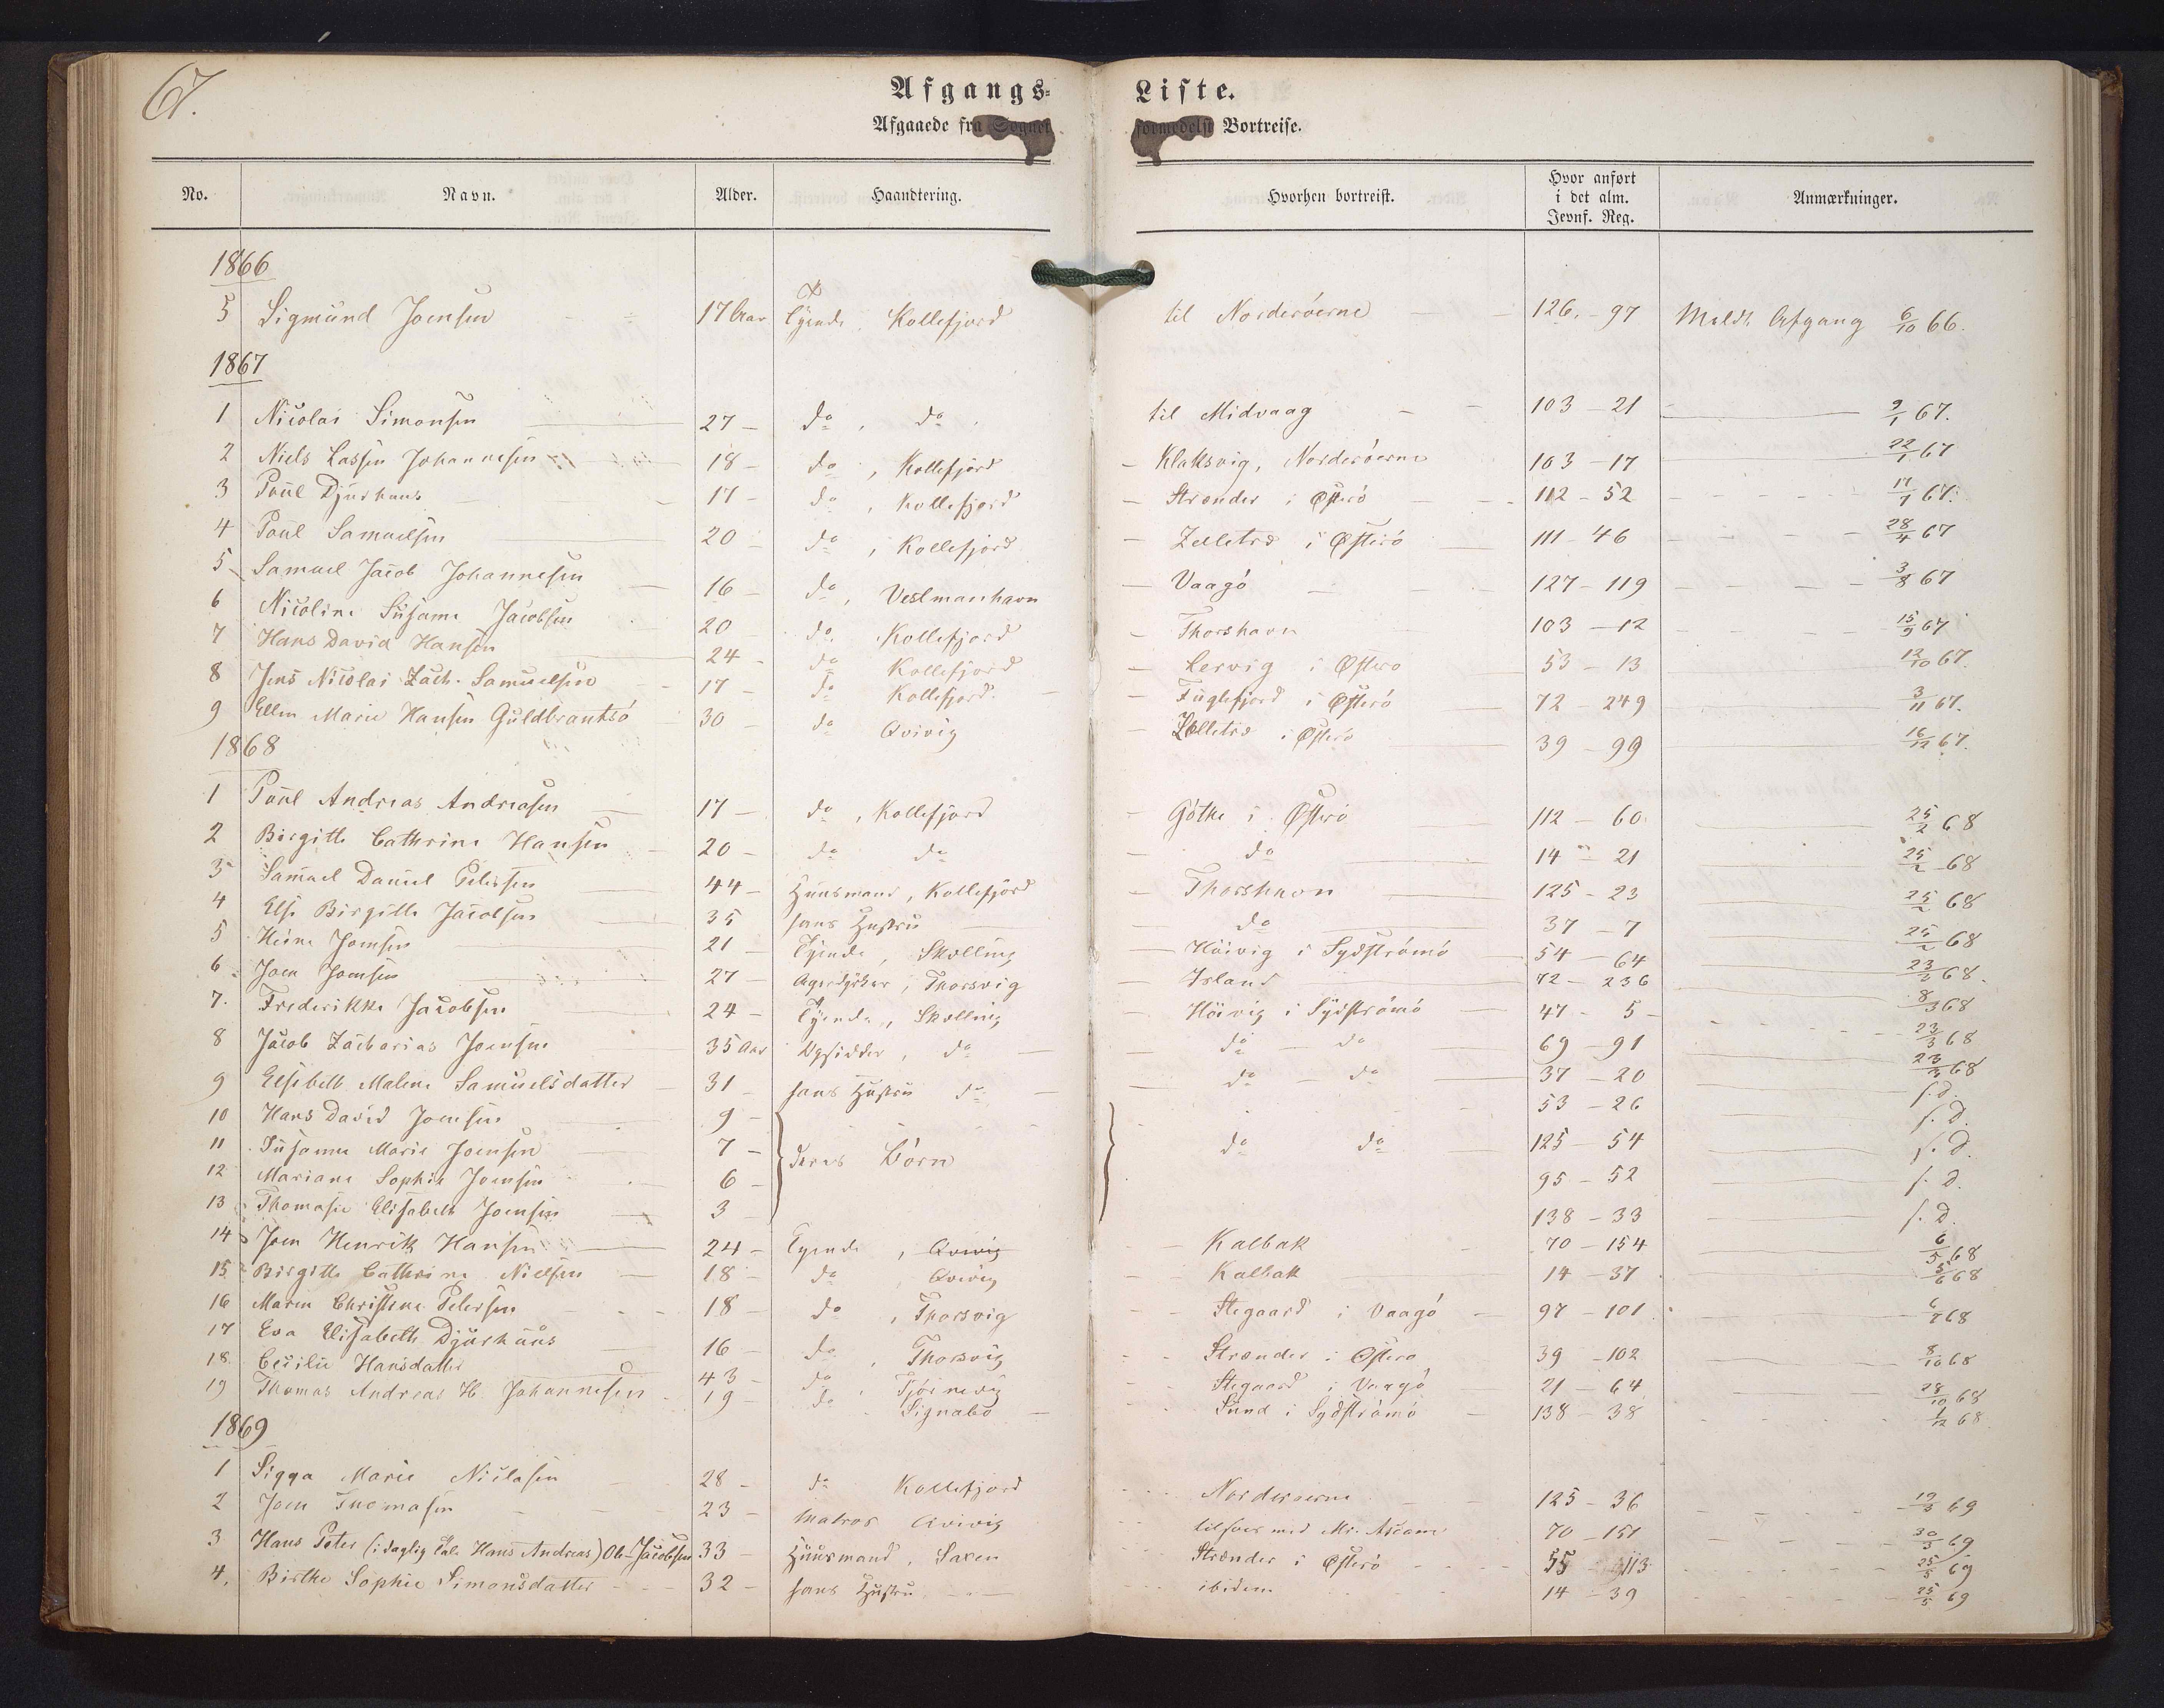 67.
Afgangs-Liste.
Afgaaede fra Sognet formedelst Bortreise.
No. Navn. Alder. Haandtering. Hvorhen bortreist. Hvor anført i det alm. Jevnf. Reg. Anmærkninger.
1866
5 Sigmund Joensen 17 Aar Tyende, Kollefjord til Norderöerne 126. - 97 Meldt Afgang 6/10 66.
1867
1 Nicolai Simonsen 27 - do, do til Midvaag 103 - 21 9/1 67.
2 Niels Lassen Johannesen 18 - do, Kollefjord - Klaksvig, Norderöerne 103 - 17 22/1 67
3 Poul Djurhuus 17 - do, Kollefjord - Strænder i Østerö 112 - 52 17/1 67.
4 Poul Samuelsen 20 - do, Kollefjord - Zelletræ i Østerö 111 - 46 28/4 67
5 Samuel Jacob Johannesen 16 - do, Vestmanhavn - Vaagö 127 - 119 3/8 67
6 Nicoline Susanne Jacobsen 20 do, Kollefjord - Thorshavn 103 - 12 15/9 67
7 Hans David Hansen 24 - do Kollefjord - Lervig i Østerö 53 - 13 12/10 67.
8 Jens Nicolai Zach. Samuelsen 17 - do Kollefjord - Fuglefjord i Østerö 72 - 249 3/11 67.
9 Ellen Marie Hansen Guldbrantsö 30 - do Qvivig - Zelletræ i Østerö 39 - 99 16/12 67.
1868
1 Poul Andreas Andreasen 17 - do, Kollefjord - Göthe i Østerö 112 - 60 25/2 68
2 Birgitte Cathrine Hansen 20 - do do - do 14 - 21 25/2 68
3 Samuel Daniel Petersen 44 - Huusmand, Kollefjord - Thorshavn 125 - 23 25/2 68
4 Else Birgitte Jacobsen 35 hans Hustru - do 37 - 7 25/2 68
5 Heine Joensen 21 - Tyende, Skælling - Höivig i Sydströmö 54 - 64 23/3 68.
6 Joen Joensen 27 - Agerdyrker, Thorsvig - Island 72 - 236 8/3 68
7. Frederikke Jacobsen 24 - Tyende, Skælling - Höivig i Sydströmö 47 - 5 - 23/3 68
8 Jacob Zacharias Joensen 35 Aar Opsidder, do - do - do 69 - 91 23/3 68
9 Elsebeth Malene Samuelsdatter 31 hans Hustru do - do - do 37 - 20 s.d.
10 Hans David Joensen 9 - 53 - 26 s.d.
11 Susanne Marie Joensen 7 - deres Börn do do 125 - 54 s.d.
12 Mariane Sophie Joensen 6 - 95 - 52 s.d.
13 Thomasie Elisabeth Joensen 3 138 - 33 s.d.
14 Joen Henrik Hansen 24 - Tyende, Qvivig - Kalbak 70 - 154 6/5 68
15 Birgitte Cathrine Nielsen 18 - do, Qvivig - Kalbak 14 - 37 5/6 68
16 Maren Christine Petersen 18 - do, Thorsvig - Stegaard i Vaagö 97 - 101 68
17 Eva Elisabeth Djurhuus 16 - do, Thorsvig - Strænder i Østerö 39 - 102 8/10 68
18. Cecilie Hansdatter 43 - do, Tjörnevig - Stegaard i Vaagö 21 - 64 28/10 68
19 Thomas Andreas H. Johannesen 19 - do Signabö - Sund i Sydströmö 138 - 38 1/12 68
1869
1 Sigga Marie Niclasen 28 - do Kollefjord Norderöerne 125 - 36 19/3 69
2 Joen Thomasen 23 - Matros Qvivig tilsöes med Mr. 70 - 151 30/3 69
3 Hans Peter (i daglig Tale Hans Andreas) Ole Jacobsen 33 - Huusmand, Saxen Strænder i Østerö 55 - 113 25/5 69
4. Birthe Sophie Simonsdatter 32 - hans Hustru ibidem 14 - 39 25/5 69